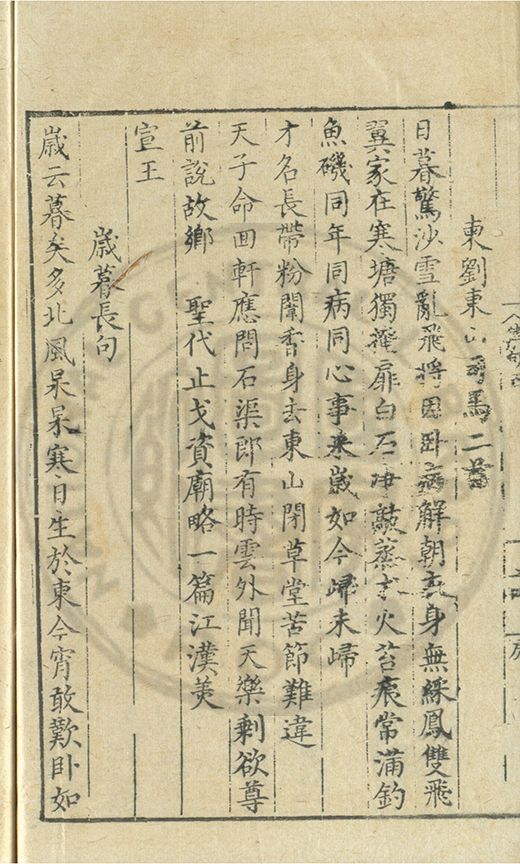 東劉東山司馬二首
日暮驚沙雪亂飛將因臥病解朝衣身無綵鳳雙飛
翼家在寒塘獨掩扉白石敲蒸火苔痕常滿釣
魚磯同年同病同心事來歲如今歸未歸
才名長帶粉闈香身去東山閉草堂苦節難違
天子命回軒應問石渠郎有時雲外聞天樂剩欲尊
前說故鄉 聖代止戈資廟略一篇江漢美
宣王
歲暮長句
歲云暮矣多北風杲杲寒日生於東今宵敢歎臥如